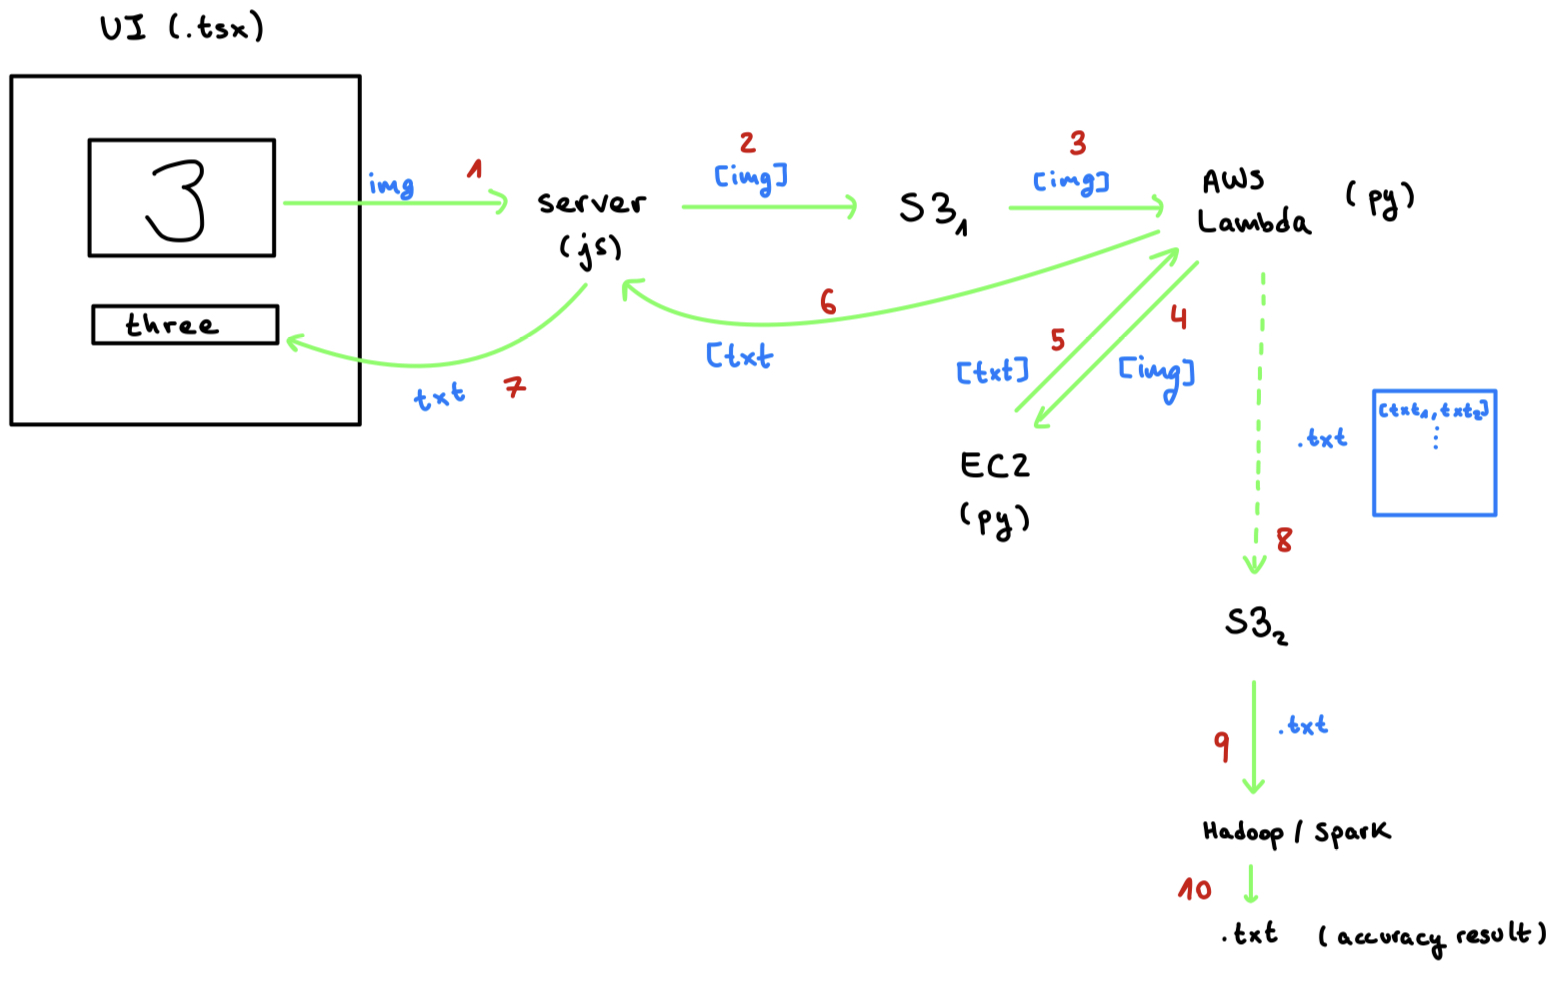 UI (.tsx)
3
img
1
server
(js)
2
[img]
S3₁
3
[img]
AWS
Lambda
(py)
three
txt
7
6
[txt
5
[txt]
4
[img]
EC2
(py)
.txt
[txt₁, txt₂]
⋮
8
S3₂
9
.txt
Hadoop / Spark
10
.txt (accuracy result)